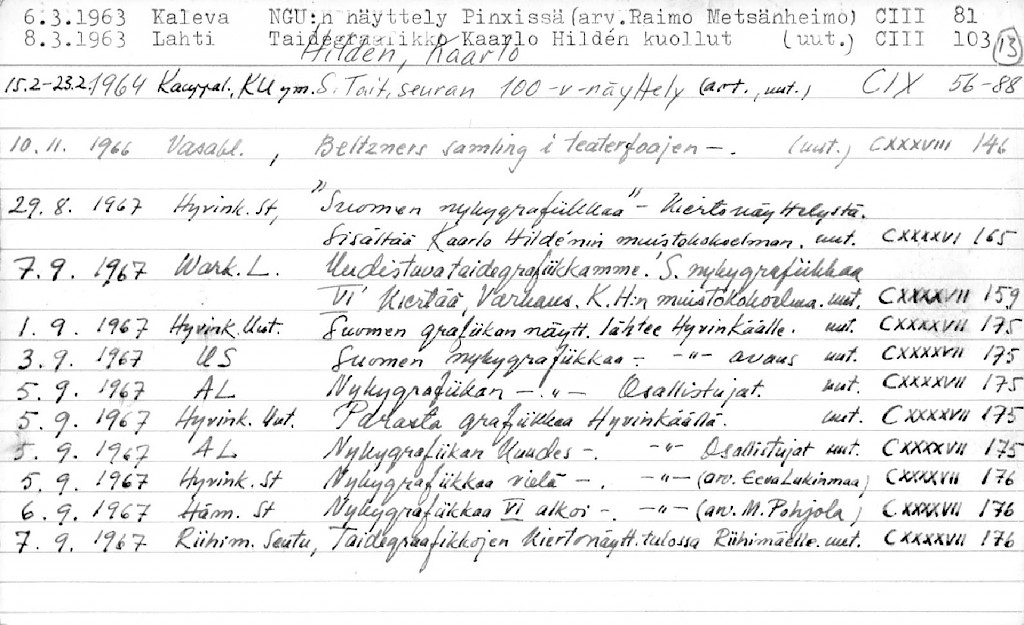 6.3.1963 Kaleva NGU:n näyttely Pinxissä (arv.Raimo Metsänheimo) CIII 81
8.3.1963 Lahti Taidegraafikko Kaarlo Hildén kuollut (uut.) CIII 103 13
Hilden, Kaarlo
15.2-23.2.1964 Kauppal., KU ym. S. Tait. seuran 100-v-näyttely (art., uut.) CIX 56-88
10.11. 1966 Vasabl., Beltzners samling i teaterfoajen -. (uut.) CXXXVIII 146
29.8. 1967 Hyvink. St, "Suomen nykygrafiikkaa" - Kiertonäyttelystä.
Sisältää Kaarlo Hildénin muistokokoelman. uut. CXXXXVI 165
7.9. 1967 Wark. L. Uudistuva taidegrafiikkamme. 'S. nykygrafiikkaa
VI' Kiertää, Varkaus. K.H:n muistokokoelma. uut. CXXXXVII 159
1.9. 1967 Hyvink. Uut. Suomen grafiikan näytt. lähtee Hyvinkäälle. uut. CXXXXVII 175
3.9. 1967 US Suomen nykygrafiikkaa - -"- avaus uut. CXXXXVII 175
5.9. 1967 AL Nykygrafiikan -. -"- Osallistujat. uut. CXXXXVII 175
5.9. 1967 Hyvink. Uut. Parasta grafiikkaa Hyvinkäällä. uut. CXXXXVII 175
5.9. 1967 AL Nykygrafiikan Kuudes -. -"- Osallistujat uut. CXXXXVII 175
5.9. 1967 Hyvink. St Nykygrafiikkaa vielä -. -"- (arv. Eeva Lakinmaa) CXXXXVII 176
6.9. 1967 Häm. St Nykygrafiikkaa VI alkoi -. -"- (arv. M. Pohjola) CXXXXVII 176
7.9. 1967 Riihim. Seutu, Taidegraafikkojen Kiertonäytt. tulossa Riihimäelle. uut. CXXXXVII 176